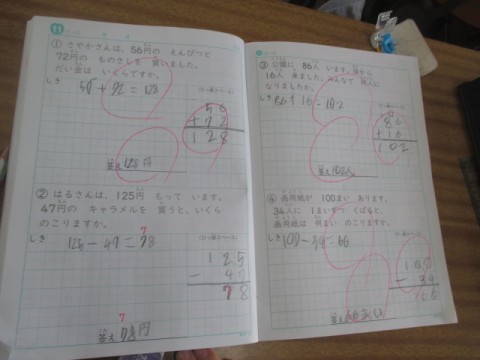 11
① さやかさんは、56円の えんぴつと
72円の ものさしを 買いました。
だい金は いくらですか。
しき 56+72=128
56
+72
128
答え 128円
② はるさんは、125円 もって います。
47円の キャラメルを 買うと、いくら
のこりますか。
しき 125-47=78
7
125
- 47
78
7
答え 78円
③ 公園に 86人 います。
16人 来ました。みんなで 何人に
なりましたか。
しき 86+16=102
86
+16
102
答え 102人
④ 画用紙が 100まい あります。
34人に 1まいずつ くばると、
画用紙は 何まい のこりますか。
しき 100-34=66
100
- 34
66
答え 66まい